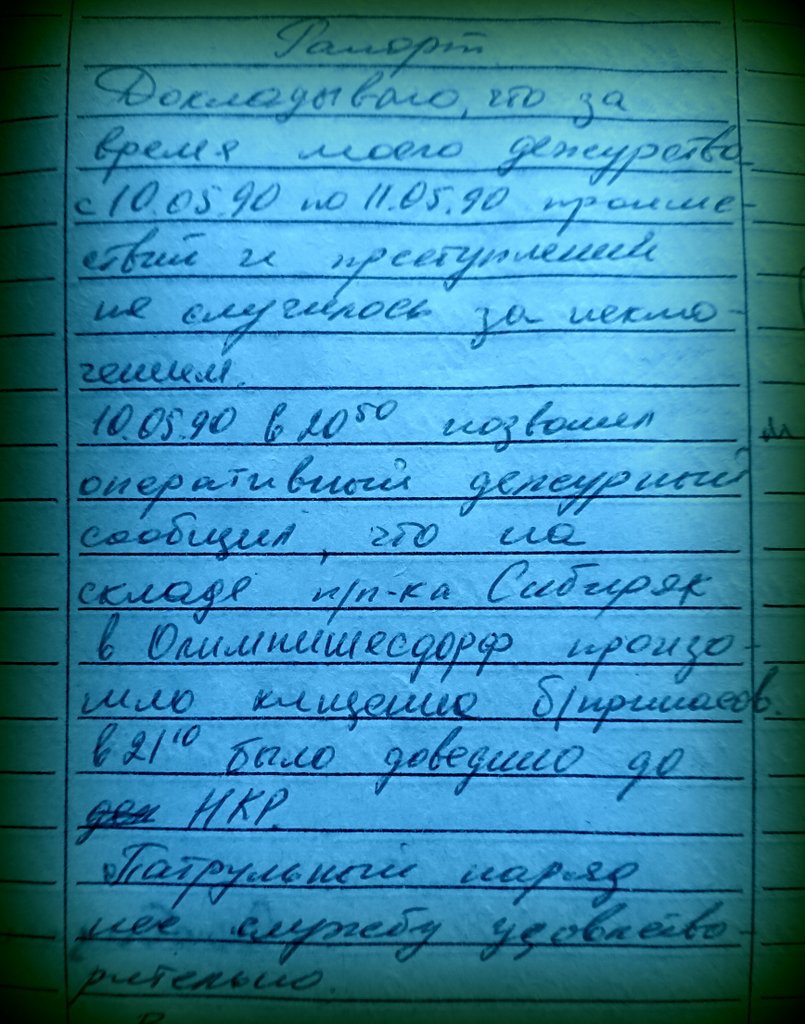 Рапорт
Докладываю, что за
время моего дежурства
с 10.05.90 по 11.05.90 происше-
ствий и преступлений
не случилось за исклю-
чением.
10.05.90 в 20⁵⁰ позвонил
оперативный дежурный
сообщил, что на
складе п/п-ка Сибиряк
в Олимпишесдорф произо-
шло хищение б/припасов.
в 21¹⁰ было доведено до
НКР.
Патрульный наряд
нес службу удовлетво-
рительно.